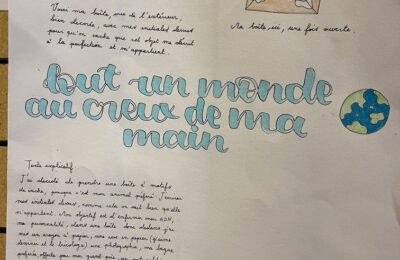 Voici ma boîte, vue de l'intérieur,
bien décorée, avec mes initiales dessus
pour qu'on sache que cet objet me décrit
à la perfection et m'appartient.
Ma boîte, ici, une fois ouverte.
tout un monde
au creux de ma
main
Texte explicatif :
J'ai décidé de prendre une boîte à motifs
de vache, puisque c'est mon animal préféré. J'ai mis
mes initiales dessus, comme cela on sait bien qu'elle
m'appartient. Mon objectif est d'enfermer mon ADN,
ma personnalité, dans une boîte donc dedans j'ai
mis un crayon à papier, une rose en papier (j'aime
dessiner et le bricolage) une photographie, ma bague
préférée, offerte par mon grand-père,